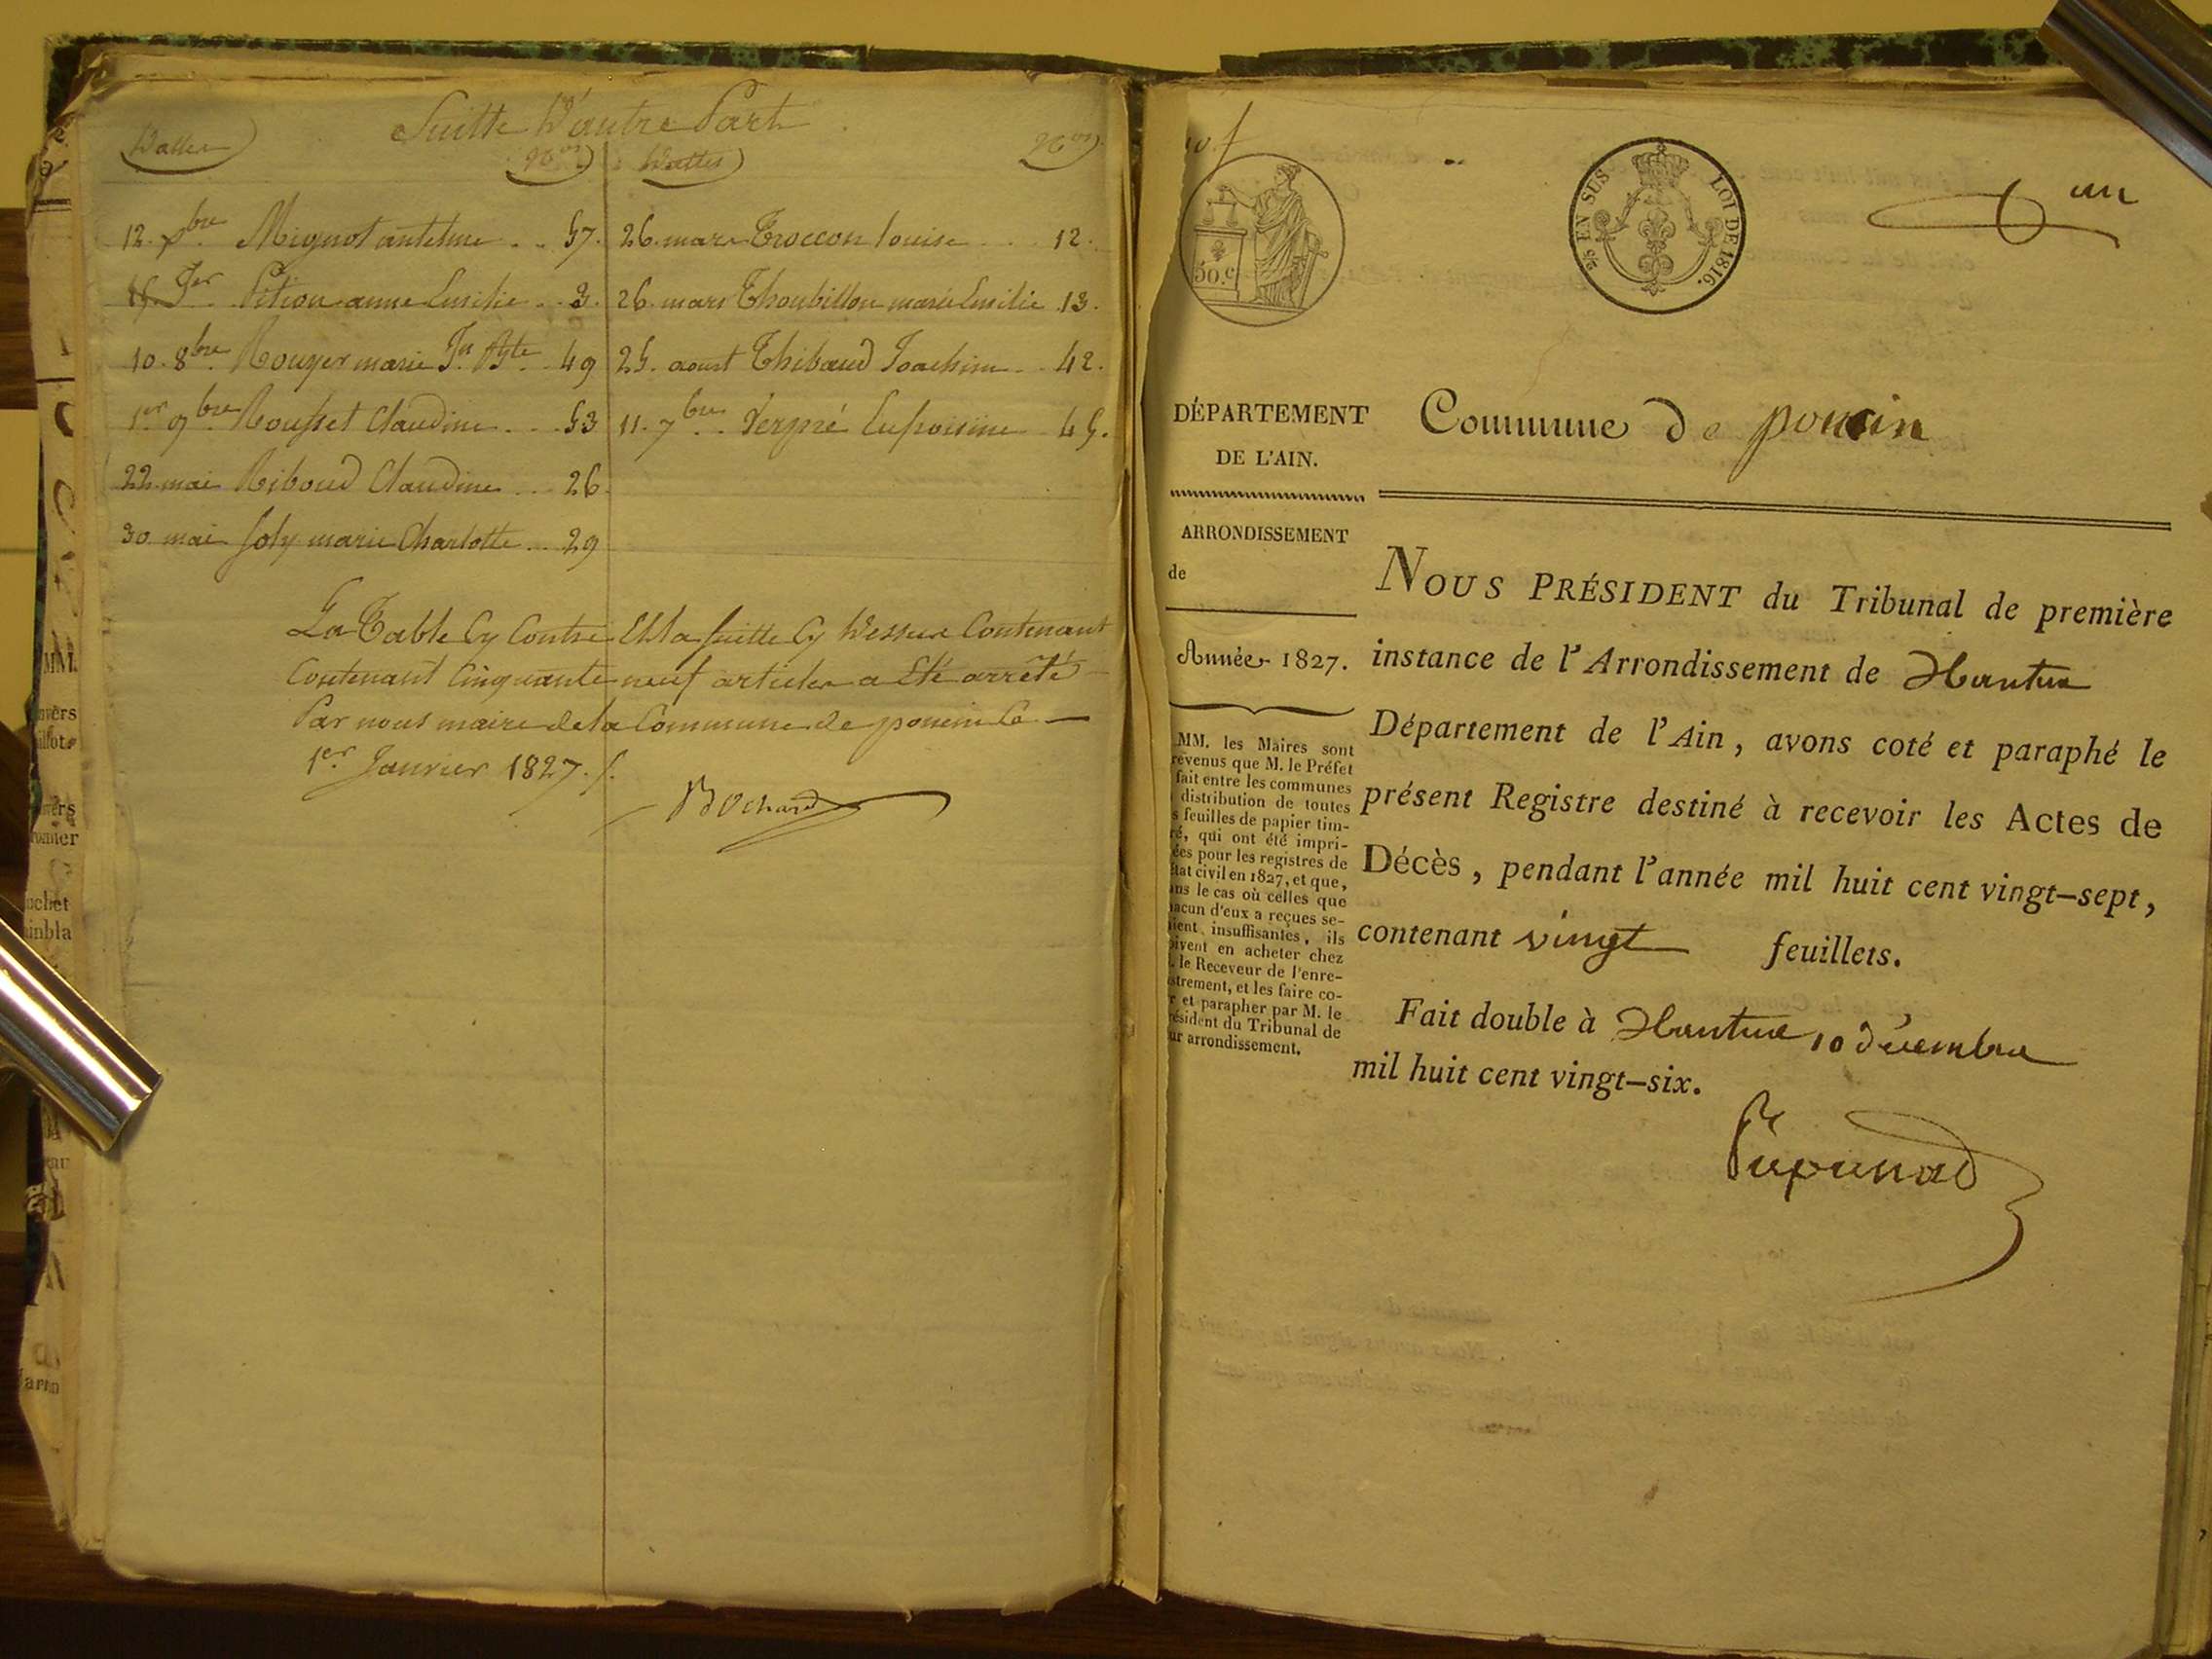 Suitte D'autre Part
Dattes Nos Dattes Nos
12. Xbre Mignot antelme .. 57.
15 Jer Pition anne Emilie .. 3.
10. 8bre Rouyer marie Jn Bte .. 49
1er 9bre Rousset Claudine .... 53
22. mai Riboud Claudine ... 26.
30. mai Joly marie Charlotte ... 29
26. mars Troccon louise .... 12.
26. mars Thoubillon marie Emilie . 13.
25. aoust Thibaud Joachim ... 42.
11. 7bre .. Verpré
45.
La Table Cy Contre Et la suitte Cy Dessus Contenant
Contenant Cinquante neuf articles a Eté arrêté
Par nous maire de la Commune de poncin le
1er Janvier 1827 ./.
Bochard
50. c
2/5 EN SUS LOI DE 1816.
un
DÉPARTEMENT
DE L'AIN.
Commune de poncin
ARRONDISSEMENT
de
Année 1827.
MM. les Maires sont
révenus que M. le Préfet
fait entre les communes
distribution de toutes
s feuilles de papier tim-
ré, qui ont été impri-
ées pour les registres de
état civil en 1827, et que,
ans le cas où celles que
acun d'eux a reçues se-
ient insuffisantes, ils
oivent en acheter chez
. le Receveur de l'enre-
istrement, et les faire co-
r et parapher par M. le
résident du Tribunal de
ur arrondissement.
NOUS PRÉSIDENT du Tribunal de première
instance de l'Arrondissement de Nantua
Département de l'Ain, avons coté et paraphé le
présent Registre destiné à recevoir les Actes de
Décès, pendant l'année mil huit cent vingt-sept,
contenant vingt feuillets.
Fait double à Nantua 10 décembre
mil huit cent vingt-six.